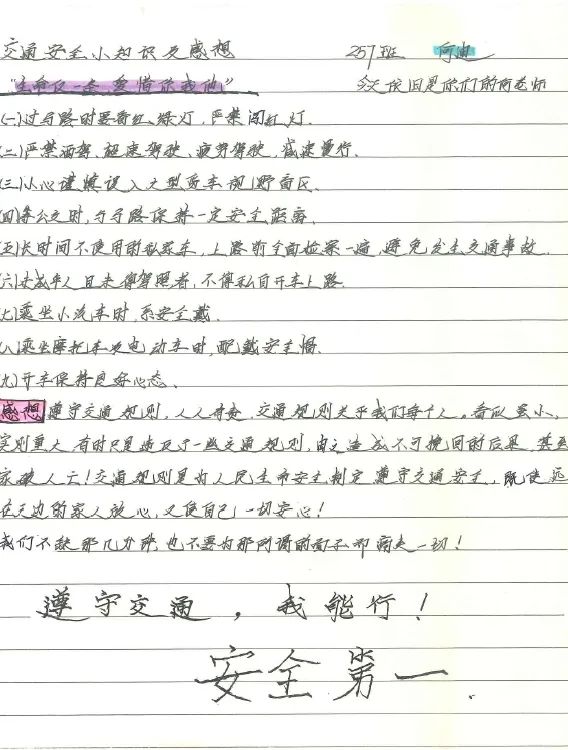 交通安全小知识及感想 257班 何迪
"生命仅一条,爱惜你我他" 今天依旧是你们的何老师
(一)过马路时要看红、绿灯,严禁闯红灯.
(二)严禁酒驾、超速驾驶、疲劳驾驶,减速慢行.
(三)小心谨慎误入大型货车视野盲区.
(四)等公交时,与马路保持一定安全距离.
(五)长时间不使用的私家车,上路前全面检察一遍,避免发生交通事故.
(六)未成年人且未得驾照者,不得私自开车上路.
(七)乘坐小汽车时,系安全戴.
(八)乘坐摩托车及电动车时,配戴安全帽.
(九)开车保持良好心态.
感想 遵守交通规则,人人有责,交通规则关乎我们每个人。看似虽小,
实则重大,有时只是违反了一些交通规则,造成不可挽回的后果,甚至
家破人亡!交通规则是为人民生命安全制定,遵守交通安全,既使远
在天边的家人放心,又使自己一切安心!
我们不缺那几分钟,也不要为那所谓的面子而丧失一切!
遵守交通,我能行!
安全第一.